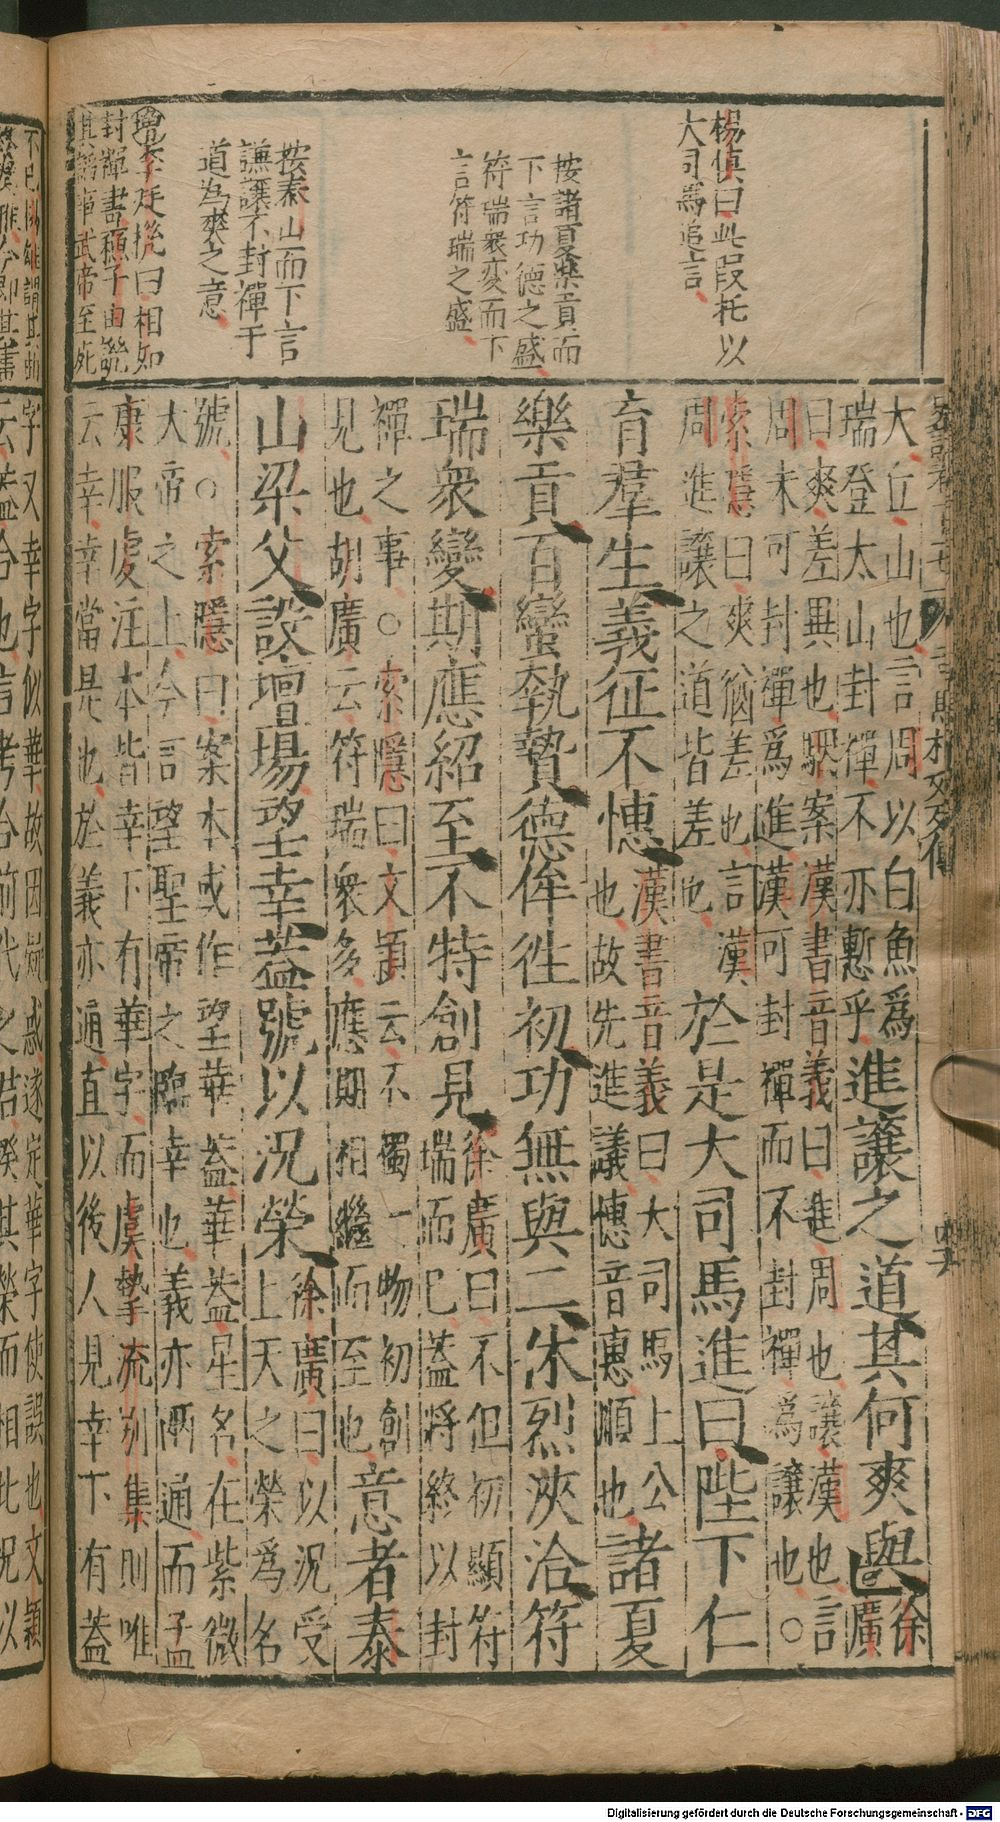 楊慎曰此叚托以
大司馬追言
按諸夏樂貢而
下言功德之盛
符瑞衆変而下
言符瑞之盛
按泰山而下言
謙讓不封禪于
道為爽之意
李廷機曰相如
封禪書穎子由
其諂事武帝至死
大丘山也言周以白魚爲
瑞登太山封禪不亦慙乎
進讓之道其何爽與
徐廣
曰爽差異也駰案漢書音義曰進周也讓漢也言
周未可封禪爲進漢可封禪而不封禪爲讓也○
索隱曰爽猶差也言漢
周進讓之道皆差也
於是大司馬進曰陛下仁
育羣生義征不憓
漢書音義曰大司馬上公
也故先進議憓音惠順也
諸夏
樂貢百蠻執贄德侔徃初功無與二休烈浹洽符
瑞衆變期應紹至不特創見
徐廣曰不但初顯符
瑞而已蓋將終以封
禪之事○索隱曰文頴云不獨一物初創
見也胡廣云符瑞衆多應期相繼而至也
意者泰
山梁父設壇場望幸蓋號以況榮
徐廣曰以況受
上天之榮爲名
號○索隱曰案本或作望華蓋華蓋星名在紫微
大帝之上今言望聖帝之臨幸也義亦兩通而孟
康服虔注本皆幸下有華字而虞摯流别集則唯
云幸幸當是也於義亦通直以後人見幸下有蓋
字又幸字似華故因疑惑遂定華字使誤也文頴
云蓋合也言考合前代之君揆其榮而相比况以
Digitalisierung gefördert durch die Deutsche Forschungsgemeinschaft - DFG